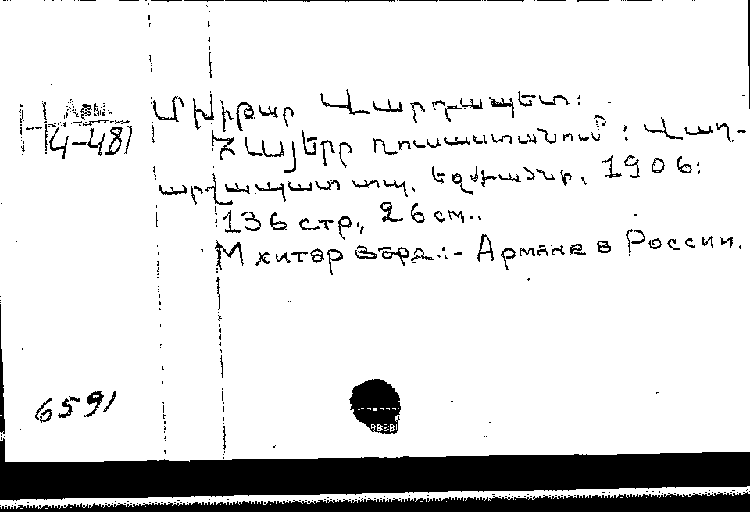 Арм.
4-481
Մխիթար Վարդապետ:
Հայերը ռուսաստանում: Վաղ-
արշապատ տպ. եջմիածնի, 1906:
136 стр., 26 см..
Мхитар вард.:- Армяне в России.
6591